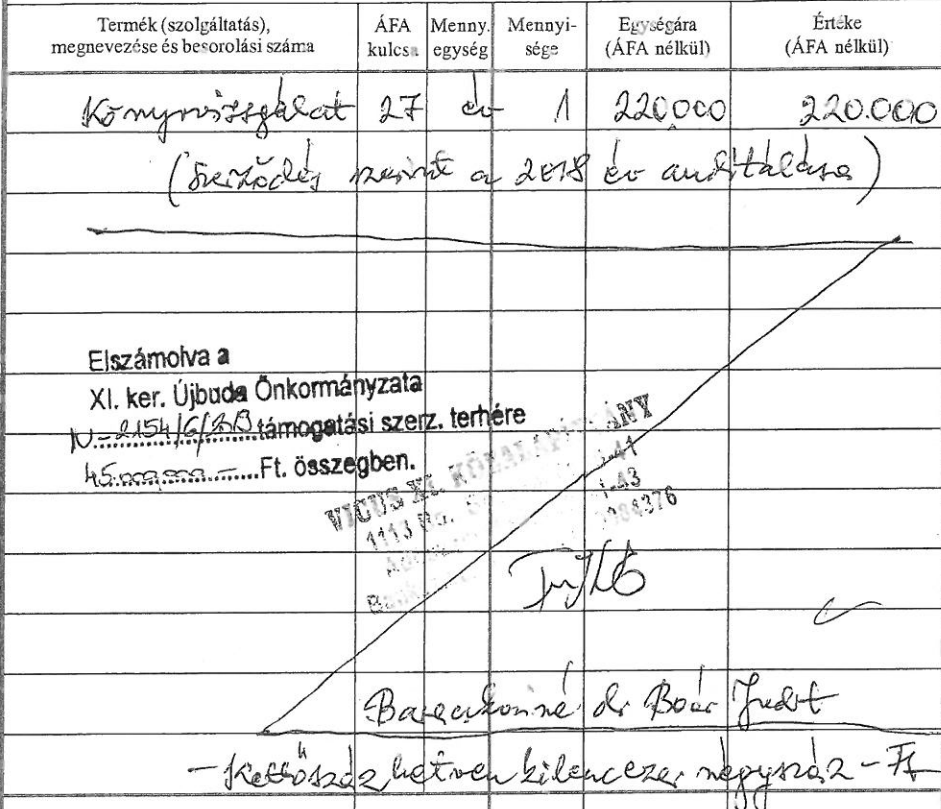 Termék (szolgáltatás), megnevezése és besorolási száma ÁFA kulcsa Menny. egység Mennyi-sége Egységára (ÁFA nélkül) Értéke (ÁFA nélkül)
Könyvvizsgálat 27 év 1 220000 220.000
(Szerződés szerint a 2018 év auditálása)
Elszámolva a
XI. ker. Újbuda Önkormányzata
támogatási szerz. terhére
Ft. összegben.
VICUS XI. KÖZALAPÍTVÁNY
1113 Bp.
dr Boér Judit
- Kettőszázhetvenkilencezer négyszáz - Ft